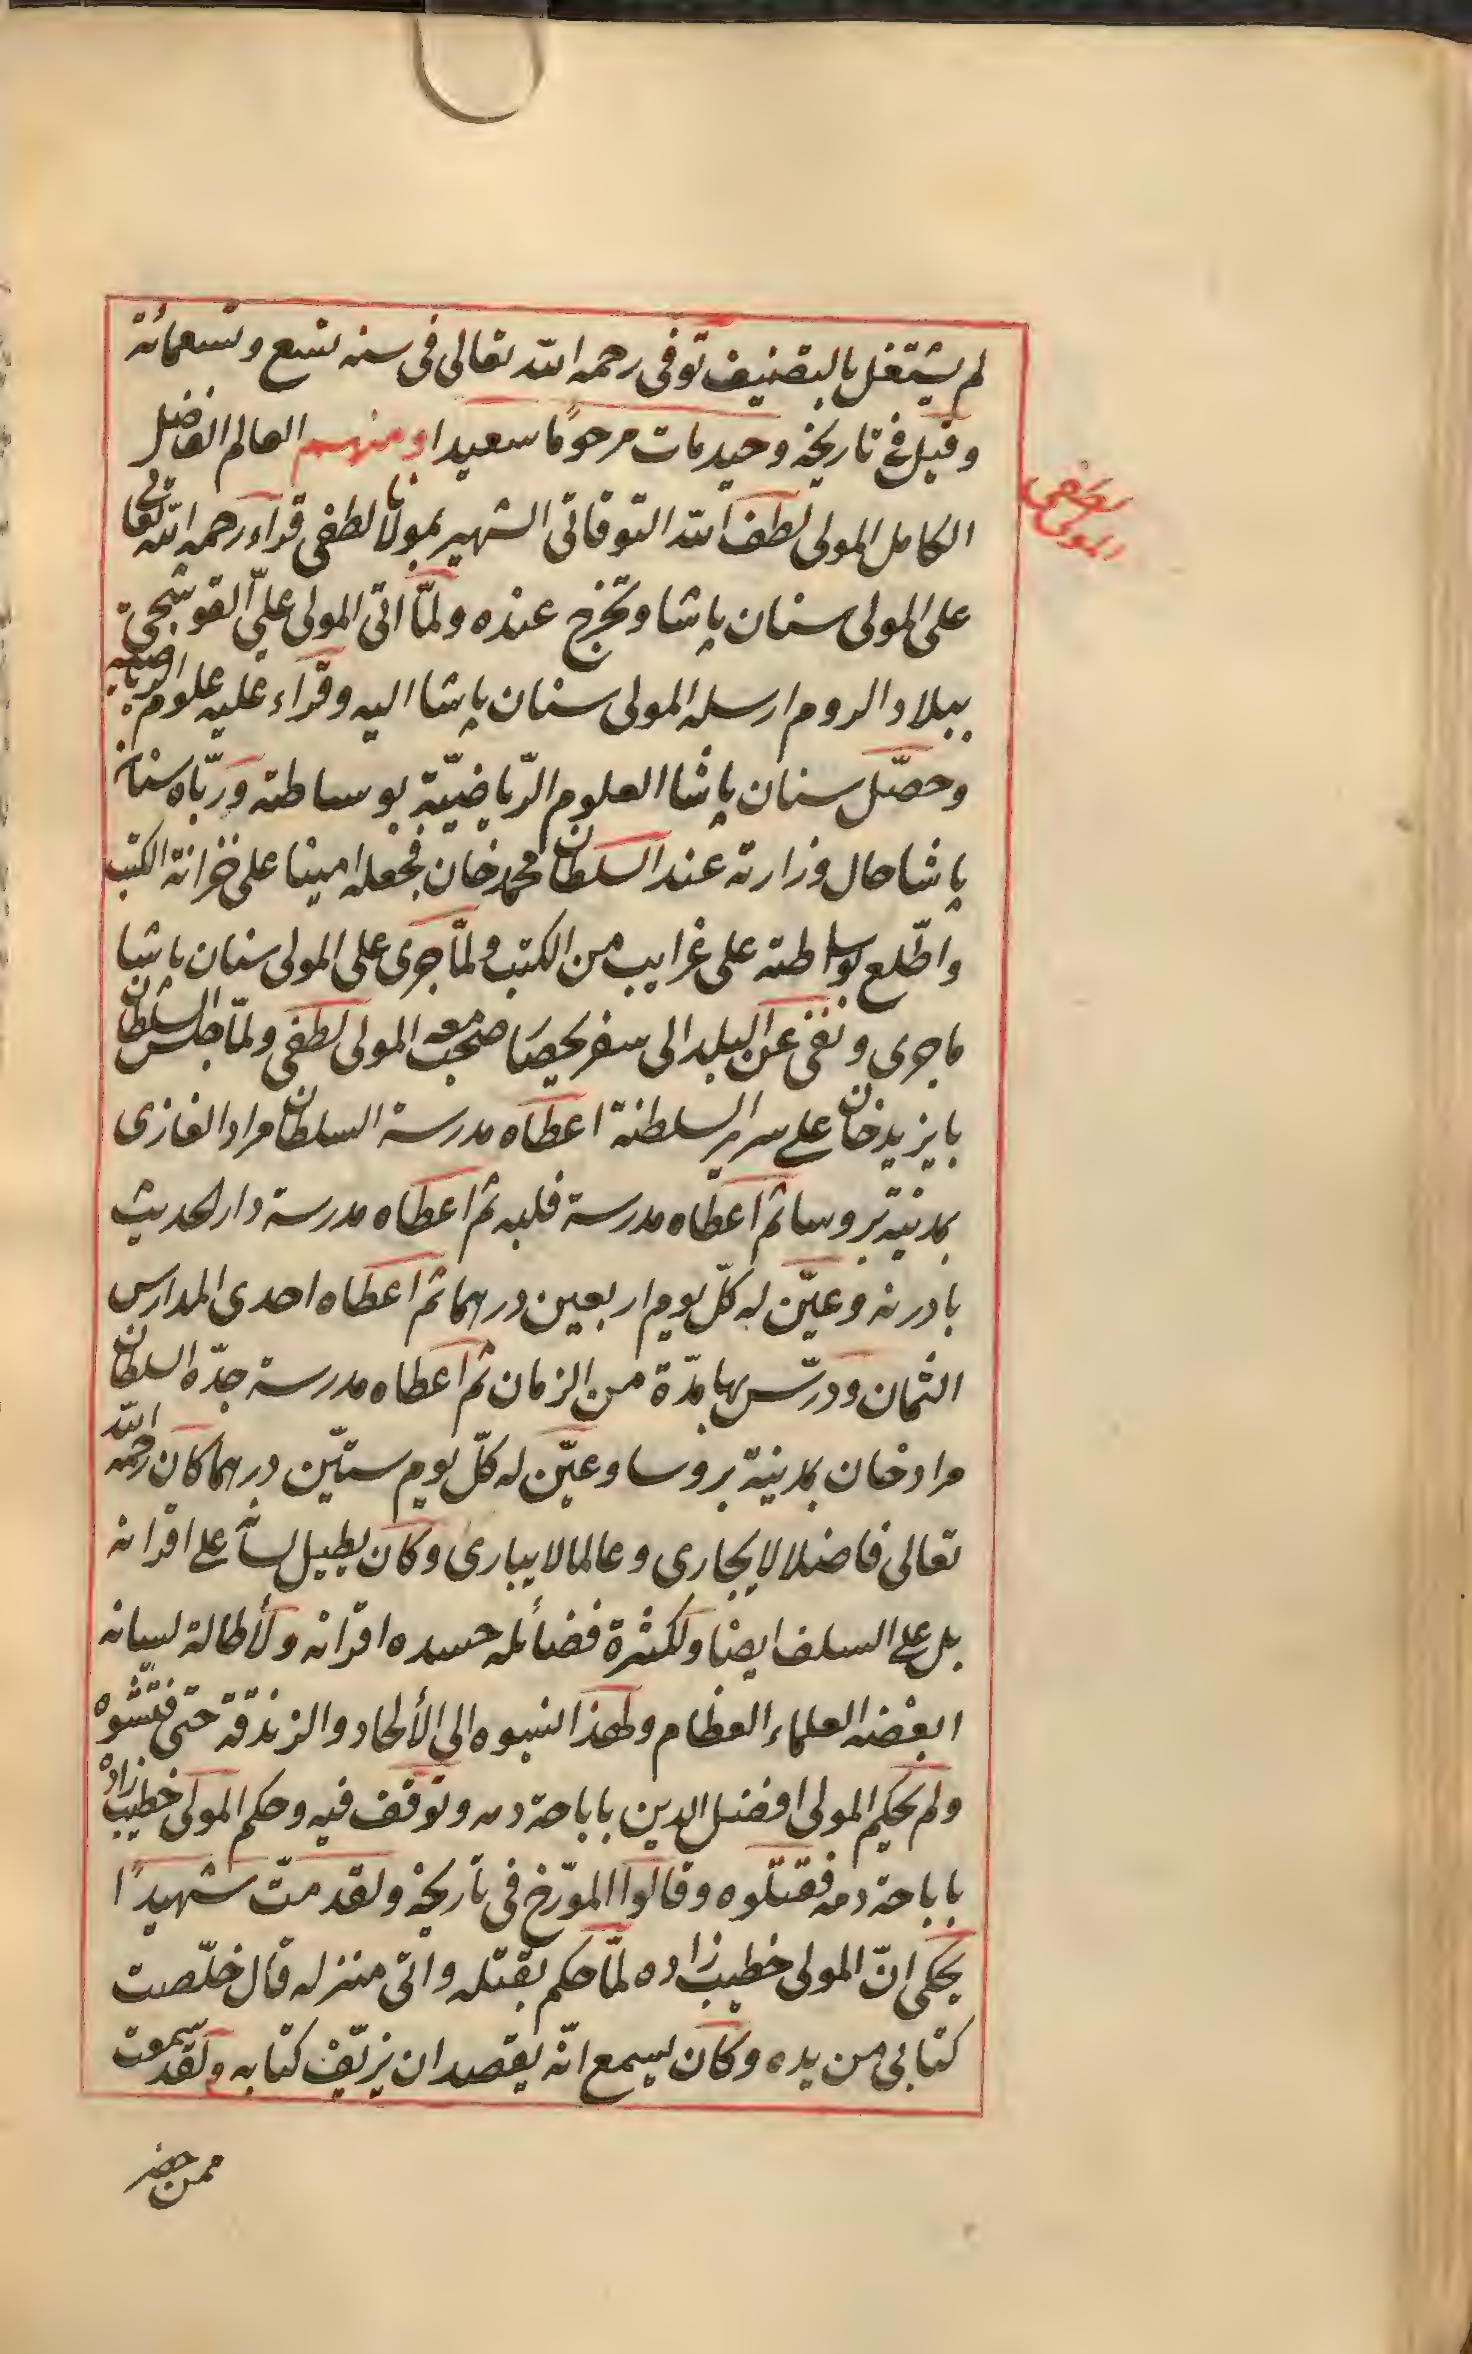 لم يشتغل بالتصنيف توفى رحمه الله تعالى فى سنه تسع وتسعمائة
وقيل فى تاريخه وحيد مات مرحوما سعيدا ومنهم العالم الفاضل
لطفى
المولى
الكامل المولى لطف الله التوقاتى الشهير بمولانا لطفى قراء رحمه الله تعالى
على المولى سنان پاشا وتخرج عنده ولمّا اتى المولى علىّ القوشجى
ببلاد الروم ارسله المولى سنان پاشا اليه وقراء عليه علوم الرياضيه
وحصّل سنان پاشا العلوم الرّياضيّة بوساطته وربّاه سنان
پاشا حال وزارته عند السلطان محمد خان فجعله امينا على خزانة الكتب
واطّلع بوساطته على غرايب من الكتب ولمّا جرى على المولى سنان پاشا
ما جرى ونفى عن البلد الى سفريحصار صحب معه المولى لطفى ولمّا جلس السلطان
بايزيد خان على سرير السلطنة اعطاه مدرسة السلطان مراد الغازى
بمدنية بروسا ثم اعطاه مدرسة فلبه ثم اعطاه مدرسة دار الحديث
بادرنه وعيّن له كلّ يوم اربعين درهما ثم اعطاه احدى المدارس
الثمان ودرّس بها مدّة من الزمان ثم اعطاه مدرسة جدّه السلطان
مراد خان بمدنية بروسا وعيّن له كلّ يوم ستيّن درهما كان رحمه الله
تعالى فاضلا لا يجارى وعالما لا يبارى وكان يطيل لسانه على اقرانه
بل على السلف ايضا ولكثرة فضائله حسده اقرانه ولأطالة لسانه
ابغضه العلماء العظام ولهذا نسبوه الى الألحاد والزندقة حتى فتّشوه
ولم يحكم المولى افضل الدين باباحة دمه وتوقف فيه وحكم المولى خطيب زاده
باباحة دمه فقتلوه وقالوا المورّخ فى تاريخه ولقد متّ شهيدًا
يحكى انّ المولى خطيب زاده لمّا حكم بقتله واتى منزله قال خلّصت
كتابى من يده وكان يسمع انّه يقصد ان يزيّف كتابه ولقد سمعت
ممن حضر